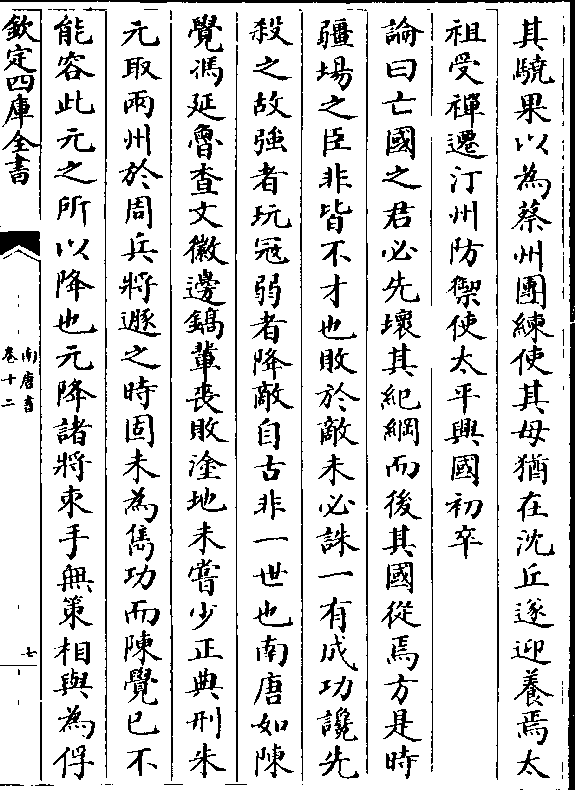 其驍果以為蔡州團練使其母猶在沈丘遂迎養焉太
祖受禪遷汀州防禦使太平興國初卒
論曰亡國之君必先壞其紀綱而後其國從焉方是時
疆埸之臣非皆不才也敗於敵未必誅一有成功讒先
殺之故強者玩寇弱者降敵自古非一世也南唐如陳
覺馮延魯查文徽邊鎬輩喪敗塗地未嘗少正典刑朱
元取兩州於周兵將遯之時固未為雋功而陳覺已不
能容此元之所以降也元降諸將束手無策相與為俘
欽定四庫全書
南唐書
卷十二
七